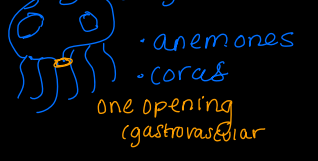 · anemones
· corals
one opening
(gastrovascular